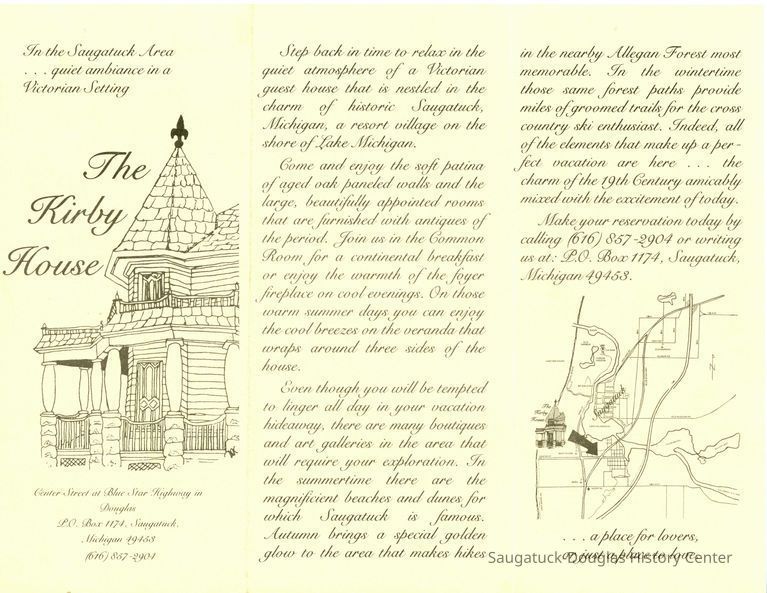 In the Saugatuck Area
. . . quiet ambiance in a
Victorian Setting
The
Kirby
House
Center Street at Blue Star Highway in
Douglas
P.O. Box 1174, Saugatuck,
Michigan 49453
(616) 857-2904
Step back in time to relax in the
quiet atmosphere of a Victorian
guest house that is nestled in the
charm of historic Saugatuck,
Michigan, a resort village on the
shore of Lake Michigan.
Come and enjoy the soft patina
of aged oak paneled walls and the
large, beautifully appointed rooms
that are furnished with antiques of
the period. Join us in the Common
Room for a continental breakfast
or enjoy the warmth of the foyer
fireplace on cool evenings. On those
warm summer days you can enjoy
the cool breezes on the veranda that
wraps around three sides of the
house.
Even though you will be tempted
to linger all day in your vacation
hideaway, there are many boutiques
and art galleries in the area that
will require your exploration. In
the summertime there are the
magnificient beaches and dunes for
which Saugatuck is famous.
Autumn brings a special golden
glow to the area that makes hikes
in the nearby Allegan Forest most
memorable. In the wintertime
those same forest paths provide
miles of groomed trails for the cross
country ski enthusiast. Indeed, all
of the elements that make up a per-
fect vacation are here . . . the
charm of the 19th Century amicably
mixed with the excitement of today.
Make your reservation today by
calling (616) 857-2904 or writing
us at: P.O. Box 1174, Saugatuck,
Michigan 49453.
Saugatuck
The
Kirby
House
. . . a place for lovers,
or just a place to love.
Saugatuck-Douglas History Center